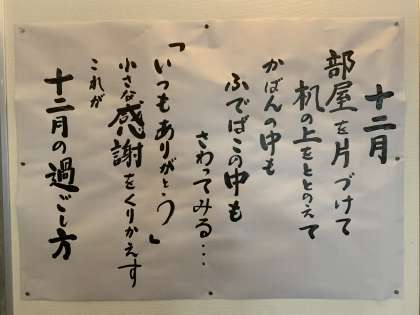 十二月
部屋を片づけて
机の上をととのえて
かばんの中も
ふでばこの中も
さわってみる...
「いつもありがとう」
小さな感謝をくりかえす
これが
十二月の過ごし方